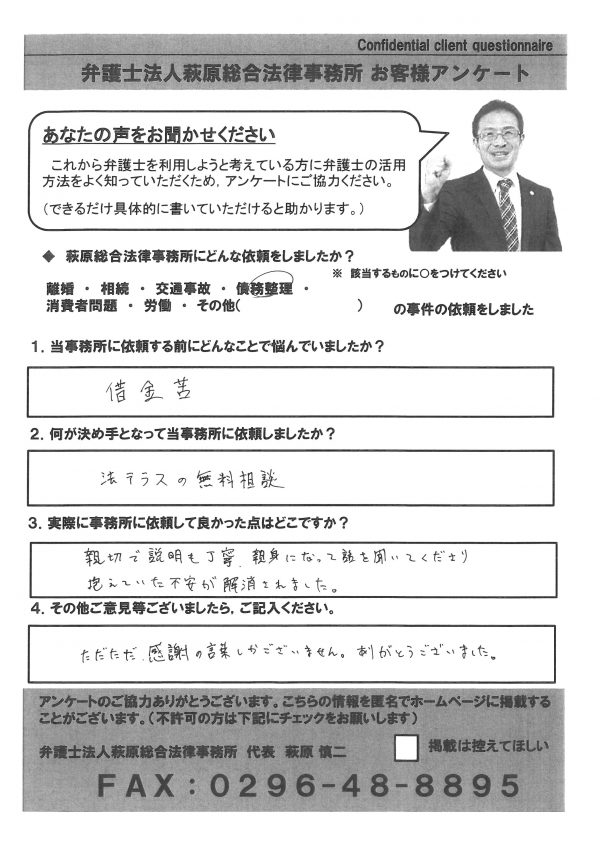 Confidential client questionnaire
弁護士法人萩原総合法律事務所 お客様アンケート
あなたの声をお聞かせください
これから弁護士を利用しようと考えている方に弁護士の活用
方法をよく知っていただくため，アンケートにご協力ください。
（できるだけ具体的に書いていただけると助かります。）
◆ 萩原総合法律事務所にどんな依頼をしましたか？
※ 該当するものに○をつけてください
離婚 ・ 相続 ・ 交通事故 ・ 債務整理 ・
消費者問題 ・ 労働 ・ その他( ) の事件の依頼をしました
１．当事務所に依頼する前にどんなことで悩んでいましたか？
借金苦
２．何が決め手となって当事務所に依頼しましたか？
法テラスの無料相談
３．実際に事務所に依頼して良かった点はどこですか？
親切で説明も丁寧、親身になって話を聞いてくださり
抱えていた不安が解消されました。
４．その他ご意見等ございましたら，ご記入ください。
ただただ、感謝の言葉しかございません。ありがとうございました。
アンケートのご協力ありがとうございます。こちらの情報を匿名でホームページに掲載する
ことがございます。（不許可の方は下記にチェックをお願いします）
弁護士法人萩原総合法律事務所 代表 萩原 慎二
掲載は控えてほしい
ＦＡＸ：０２９６－４８－８８９５